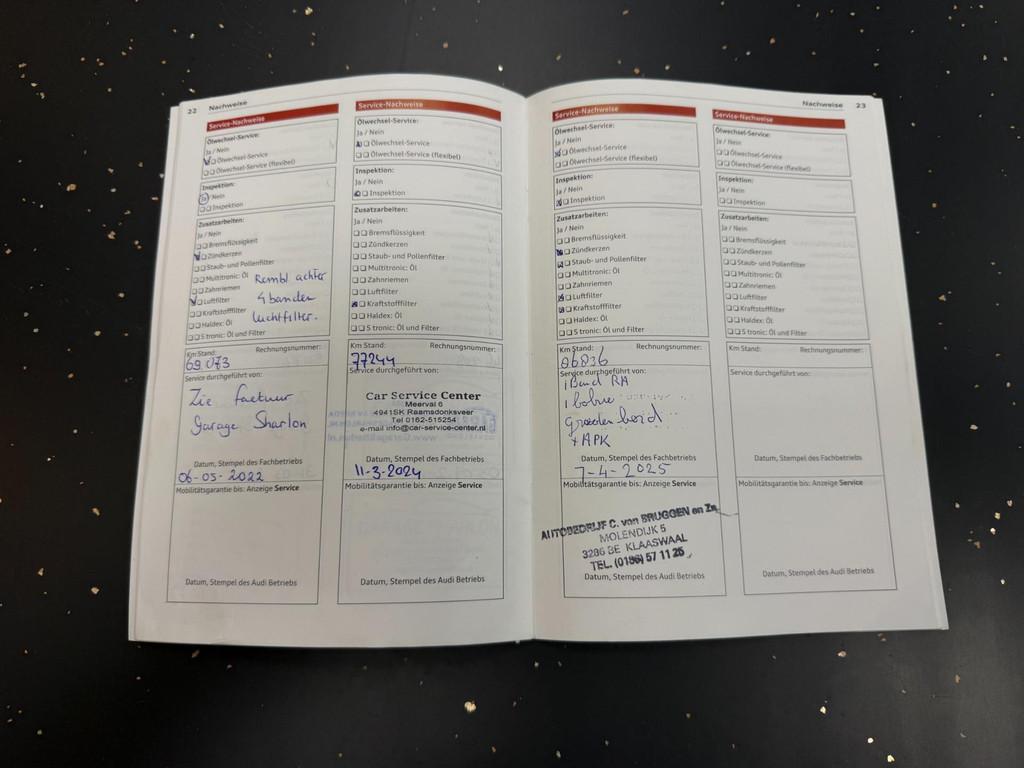 22 Nachweise
Service-Nachweise
Ölwechsel-Service:
Ja / Nein
Ölwechsel-Service
Ölwechsel-Service (flexibel)
Inspektion:
Ja / Nein
Inspektion
Zusatzarbeiten:
Ja / Nein
Bremsflüssigkeit
Zündkerzen
Staub- und Pollenfilter
Multitronic: Öl
Zahnriemen
Luftfilter
Kraftstofffilter
Haldex: Öl
S tronic: Öl und Filter
Rembl achter
4 banden
luchtfilter.
Km Stand: Rechnungsnummer:
69 073
Service durchgeführt von:
Zie factuur
Garage Sharlon
Datum, Stempel des Fachbetriebs
06-05-2022
Mobilitätsgarantie bis: Anzeige Service
Datum, Stempel des Audi Betriebs
Service-Nachweise
Ölwechsel-Service:
Ja / Nein
Ölwechsel-Service
Ölwechsel-Service (flexibel)
Inspektion:
Ja / Nein
Inspektion
Zusatzarbeiten:
Ja / Nein
Bremsflüssigkeit
Zündkerzen
Staub- und Pollenfilter
Multitronic: Öl
Zahnriemen
Luftfilter
Kraftstofffilter
Haldex: Öl
S tronic: Öl und Filter
Km Stand: Rechnungsnummer:
77244
Service durchgeführt von:
Car Service Center
Meerval 6
4941SK Raamsdonksveer
Tel 0162-515254
e-mail info@car-service-center.nl
Datum, Stempel des Fachbetriebs
11-3-2024
Mobilitätsgarantie bis: Anzeige Service
Datum, Stempel des Audi Betriebs
Nachweise 23
Service-Nachweise
Ölwechsel-Service:
Ja / Nein
Ölwechsel-Service
Ölwechsel-Service (flexibel)
Inspektion:
Ja / Nein
Inspektion
Zusatzarbeiten:
Ja / Nein
Bremsflüssigkeit
Zündkerzen
Staub- und Pollenfilter
Multitronic: Öl
Zahnriemen
Luftfilter
Kraftstofffilter
Haldex: Öl
S tronic: Öl und Filter
Km Stand: Rechnungsnummer:
86836
Service durchgeführt von:
1 Band RA
1 bobine
+ APK
Datum, Stempel des Fachbetriebs
7-4-2025
Mobilitätsgarantie bis: Anzeige Service
AUTOBEDRIJF C. van BRUGGEN en Zn.
MOLENDIJK 5
3286 BE KLAASWAAL
TEL. (0186) 57 11 25
Datum, Stempel des Audi Betriebs
Service-Nachweise
Ölwechsel-Service:
Ja / Nein
Ölwechsel-Service
Ölwechsel-Service (flexibel)
Inspektion:
Ja / Nein
Inspektion
Zusatzarbeiten:
Ja / Nein
Bremsflüssigkeit
Zündkerzen
Staub- und Pollenfilter
Multitronic: Öl
Zahnriemen
Luftfilter
Kraftstofffilter
Haldex: Öl
S tronic: Öl und Filter
Km Stand: Rechnungsnummer:
Service durchgeführt von:
Datum, Stempel des Fachbetriebs
Mobilitätsgarantie bis: Anzeige Service
Datum, Stempel des Audi Betriebs